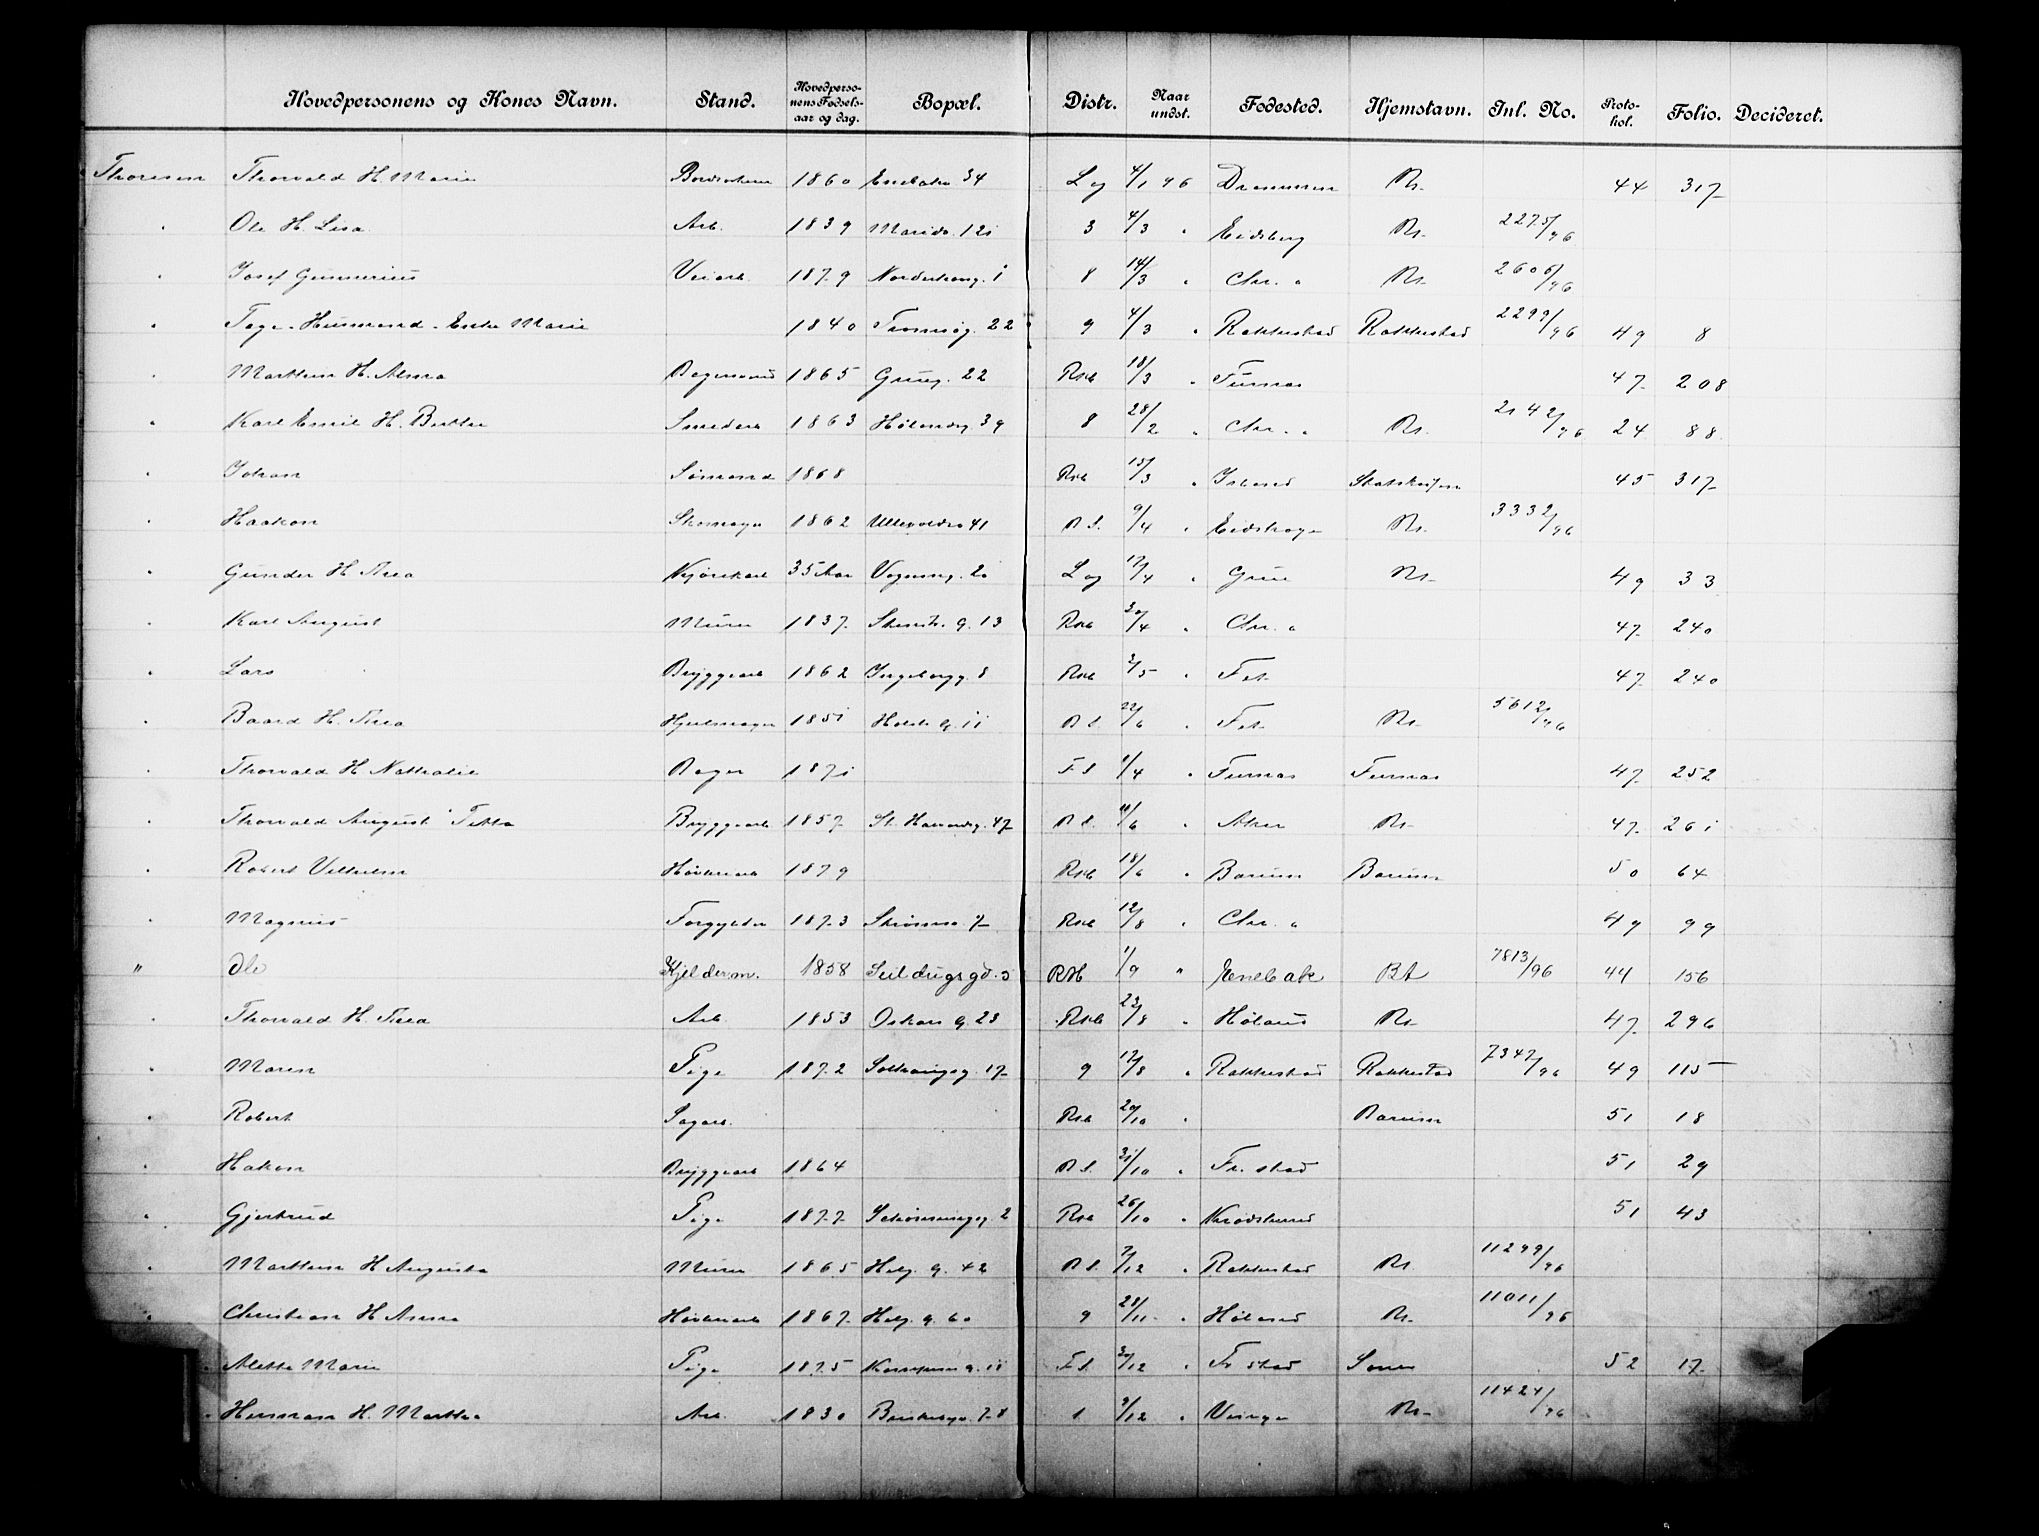 Hovedpersonens og Kones Navn. Stand. Hovedperso-nens Fødsels-aar og dag. Bopæl. Distr. Naar undst. Fødested. Hjemstavn. Inl. No. Proto-kol. Folio. Decideret.
Thoresen Thorvald H. Marie 1860 Enebakv 34 Log 4/1 96 Drammen Kr. 44 317
" Ole H. Lisa Arb. 1839 Marids. 121 3 4/3 " Eidsberg Kr. 2275/96
" Josef Gunnerius Veiarb. 1879 1 8 14/3 " Chr. a Kr. 2606/96
" Enke Marie 1840 Tromsøg. 22 9 4/3 " Rakkestad Rakkestad 2299/96 49 8
" Marthin H. Alma 1865 Grueg. 22 Rkb 18/3 " Furnes 47 208
" Karl Emil H. Berthe Smedarb 1863 39 8 28/2 " Chr. a Kr. 2142/96 24 88
" Johan Sømand 1868 Rkb 15/3 " 45 317
" Haakon Skomager 1862 Ullevoldsv 41 B S. 9/4 " Eidskoge Kr. 3332/96
" Gunder H. Kjørekarl 35 Aar Vognmg. 20 Log 17/4 " Grue Kr. 49 33
" Karl August Murer 1837 Stenstr. g. 13 Rkb 30/4 " Chr. a 47 240
" Lars Bryggearb 1862 Ingeborgg. 8 Rkb 2/5 " Fet 47 240
" Baard H. Thea Hjulmager 1851 Holst g. 11 B S. 22/6 " Fet Kr. 5612/96
" Thorvald H. Nathalie Bager 1871 F S 1/4 " Furnes Furnes 47 252
" Thorvald August Bryggearb 1857 St. Halvardsg. 47 B S. 11/6 " Aker Kr. 47 261
" Robert Vilhelm Høvleriarb 1879 Rkb 18/6 " Bærum Bærum 50 64
" Magnus Forgylder 1873 7 Rkb 12/8 " Chr. a 49 99
" Ole Kjelderm. 1858 Seildugsgd. 5 RK 1/9 " Enebak 7813/96 44 156
" Thorvald H. Thea Arb. 1853 Oskars g. 23 Rkb 23/8 " Høland Kr. 47 296
" Maren Pige 1872 17 9 17/8 " Rakkestad Rakkestad 7347/96 49 115
" Robert Sagarb. Rkb 20/10 " Bærum 51 18
" Hakon Bryggearb 1864 B S. 31/10 " Fr. stad 51 29
" Gjertrud Pige 1877 Schønningsg. 2 Rkb 26/10 " Krødsherred 51 43
" Marthin H. Augusta Murer 1865 Helg. g. 42 B S. 7/12 " Rakkestad Kr. 11299/96
" Christian H. Anna Høvleriarb 1867 Helg. g. 60 9 28/11 " Høland Kr. 11011/96
" Alette Marie Pige 1875 g. 11 F S. 30/12 " Fr stad Soner 52 17
" Herman H. Marthe Arb. 1830 1 9/12 " Vinger Kr. 11424/96